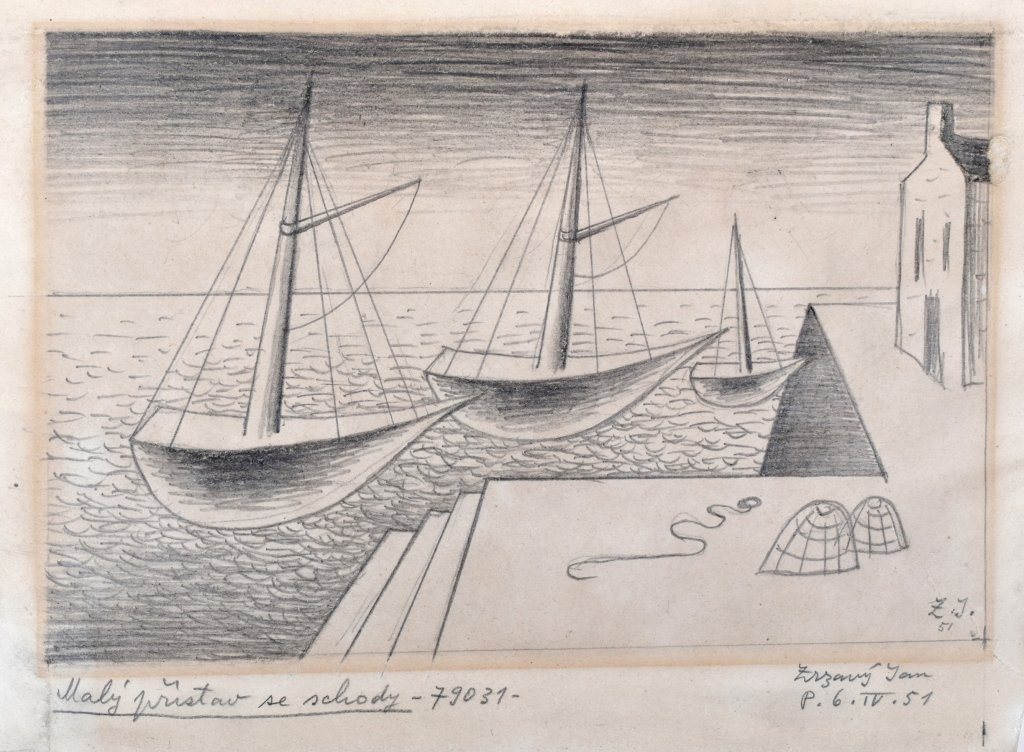 Ž. J.
51
Malý přístav se schody - 79031 -
Zrzavý Jan
P. 6. IV. 51